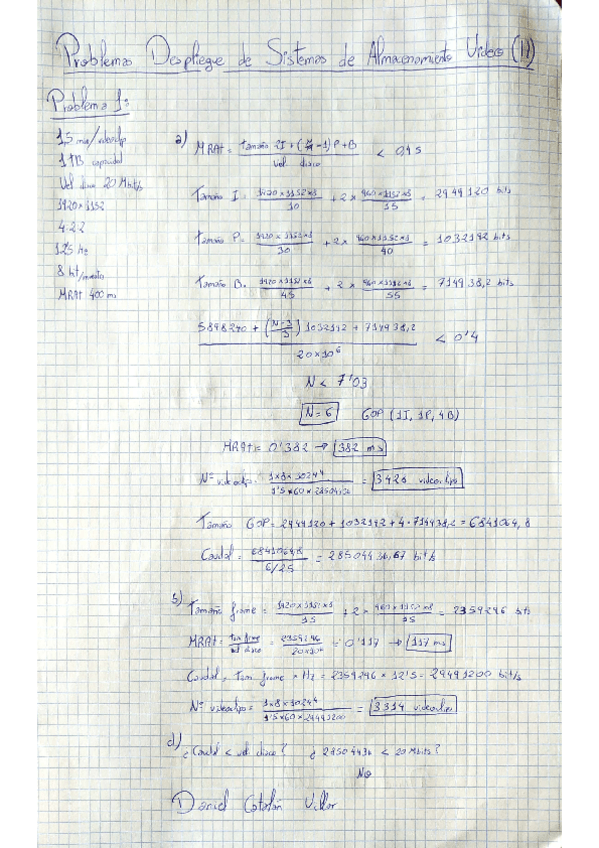 Problemas Despliegue de Sistemas de Almacenamiento Video (11)
Problema 1:
1,5 min/videoclip
1TB capacidad
Vel disco 20 Mbit/s
1920x1152
4:2:2
12'5 Hz
8 bit/muestra
MRAt 400 ms
a) MRAt = tamaño 2I + (N/3 -1)P + B / vel disco < 0,4 s
Tamaño I = 1920x1152x8 / 10 + 2x 960x1152x8 / 15 = 2949120 bits
Tamaño P = 1920x1152x8 / 30 + 2x 960x1152x8 / 40 = 1032192 bits
Tamaño B = 1920x1152x8 / 45 + 2x 960x1152x8 / 55 = 714938,2 bits
5898240 + (N-3 / 3) 1032192 + 714938,2 / 20x10^6 < 0'4
N < 7'03
N=6 GOP (1I, 1P, 4B)
MRAt = 0'382 → 382 ms
Nº videoclips = 1x8x1024^4 / 1'5x60x28504436 = 3428 videoclips
Tamaño GOP = 2949120 + 1032192 + 4·714938,2 = 6841064,8
Caudal = 6841064,8 / 6/25 = 28504436,67 bit/s
b) Tamaño frame = 1920x1152x8 / 15 + 2x 960x1152x8 / 15 = 2359296 bits
MRAt = tam frame / vel disco = 2359296 / 20x10^6 = 0'117 → 117 ms
Caudal = Tam frame x Hz = 2359296 x 12'5 = 29491200 bit/s
Nº videoclips = 1x8x1024^4 / 1'5x60x29491200 = 3314 videoclips
d) ¿Caudal < vel disco? ¿ 28504436 < 20 Mbit/s?
No
Daniel Catalán Villar